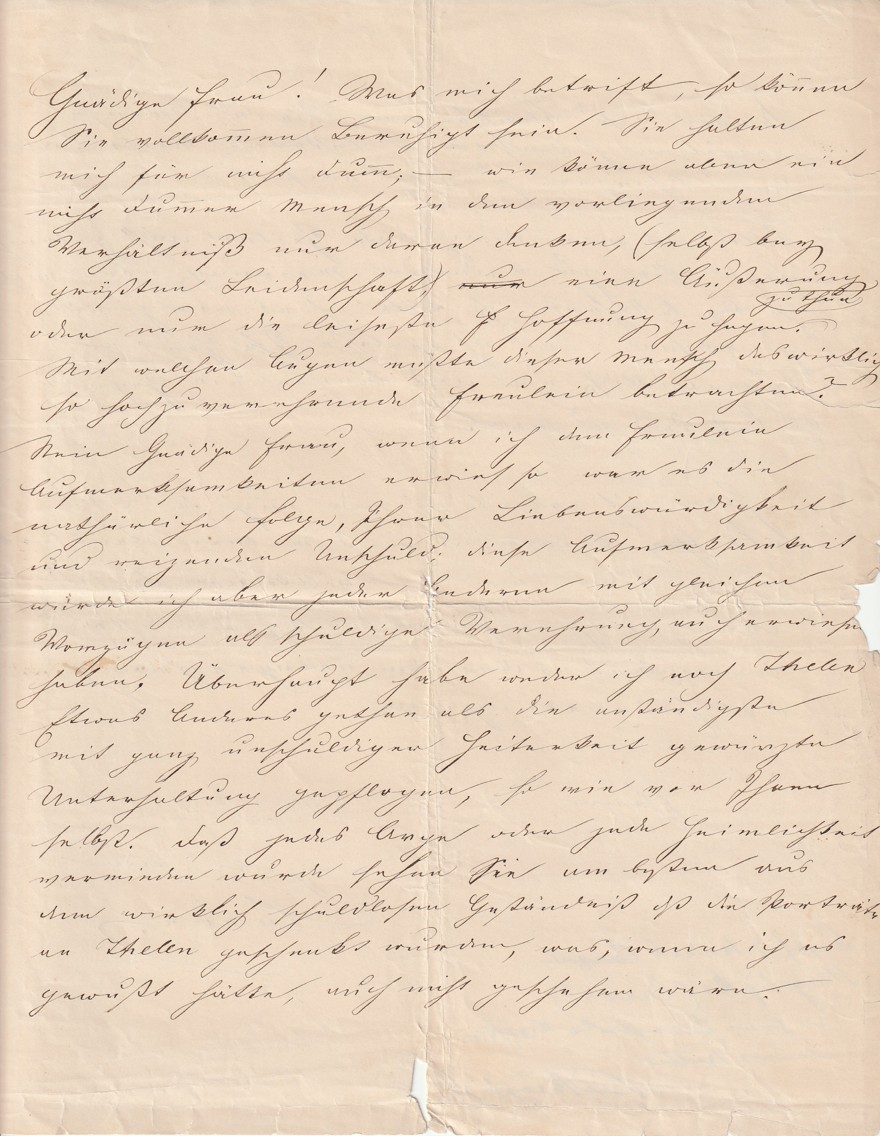 Gnädige Frau! Was mich betrift, so können
Sie vollkommen Beruhigt sein. Sie halten
mich für nicht dumm; — wie könne aber ein
nicht dummer Mensch in dem vorliegenden
Verhältniß nur daran denken, (selbst bey
größten Leidenschaft,) nur eine Äußerung
zu thun
oder nur die leiseste Hoffnung zu hegen.
Mit welchen Augen müßte dieser Mensch das wirklich
so hochzuverehrende Freulein betrachten?
Nein Gnädige Frau, wenn ich dem Freulein
Aufmerksamkeiten erwies so war es die
nathürliche Folge, Ihrer Liebenswürdigkeit
und reizenden Unschuld; diese Aufmerksamkeit
würde ich aber jeder Anderen mit gleichen
Vorzügen als schuldige Verehrung, auch erwiesen
haben. Überhaupt habe weder ich noch Thelen
Etwas Anderes gethan als die anständigste
mit ganz unschuldiger Heiterkeit gewürzte
Unterhaltung gepflogen, so wie vor Ihnen
selbst. Daß jedes Arge oder jede Heimlichkeit
vermieden wurde sehen Sie am besten aus
dem wirklich schuldlosen Geständniß dß die Porträte
an Thelen geschenkt wurden, was, wenn ich es
gewußt hätte, auch nicht geschehen wäre.